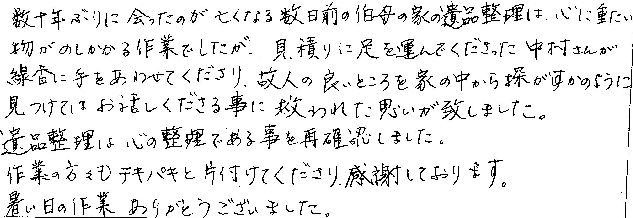 数十年ぶりに会ったのが亡くなる数日前の伯母の家の遺品整理は、心に重たい
物がのしかかる作業でしたが、見積りに足を運んでくださった中村さんが
線香に手をあわせてくださり、故人の良いところを家の中から探がすかのように
見つけてはお話しくださる事に救われた思いが致しました。
遺品整理は心の整理である事を再確認しました。
作業の方々もテキパキと片付けてくださり感謝しております。
暑い日の作業ありがとうございました。